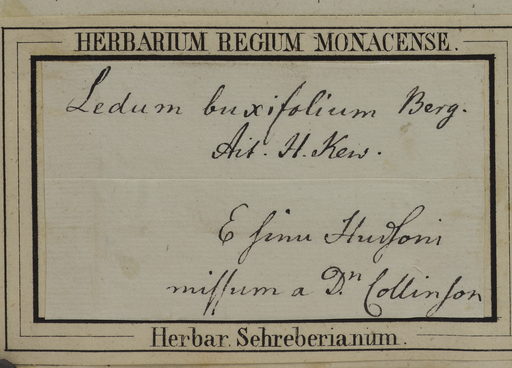 HERBARIUM REGIUM MONACENSE.
Ledum buxifolium Berg.
Ait. H. Kew.
E sinu Hudsoni
missum a Dn. Collinson
Herbar. Schreberianum.